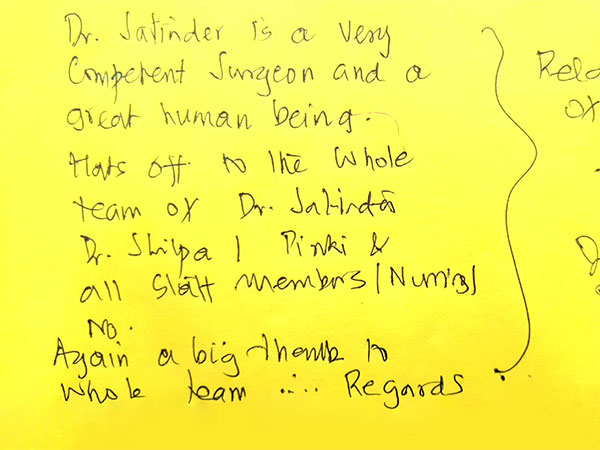 Dr. Jatinder is a very
Competent Surgeon and a
great human being.
Hats off to the whole
team of Dr. Jatinder
Dr. Shilpa | Pinki &
all Staff Members |
No.
Again a big thank to
whole team .... Regards
Rela
of